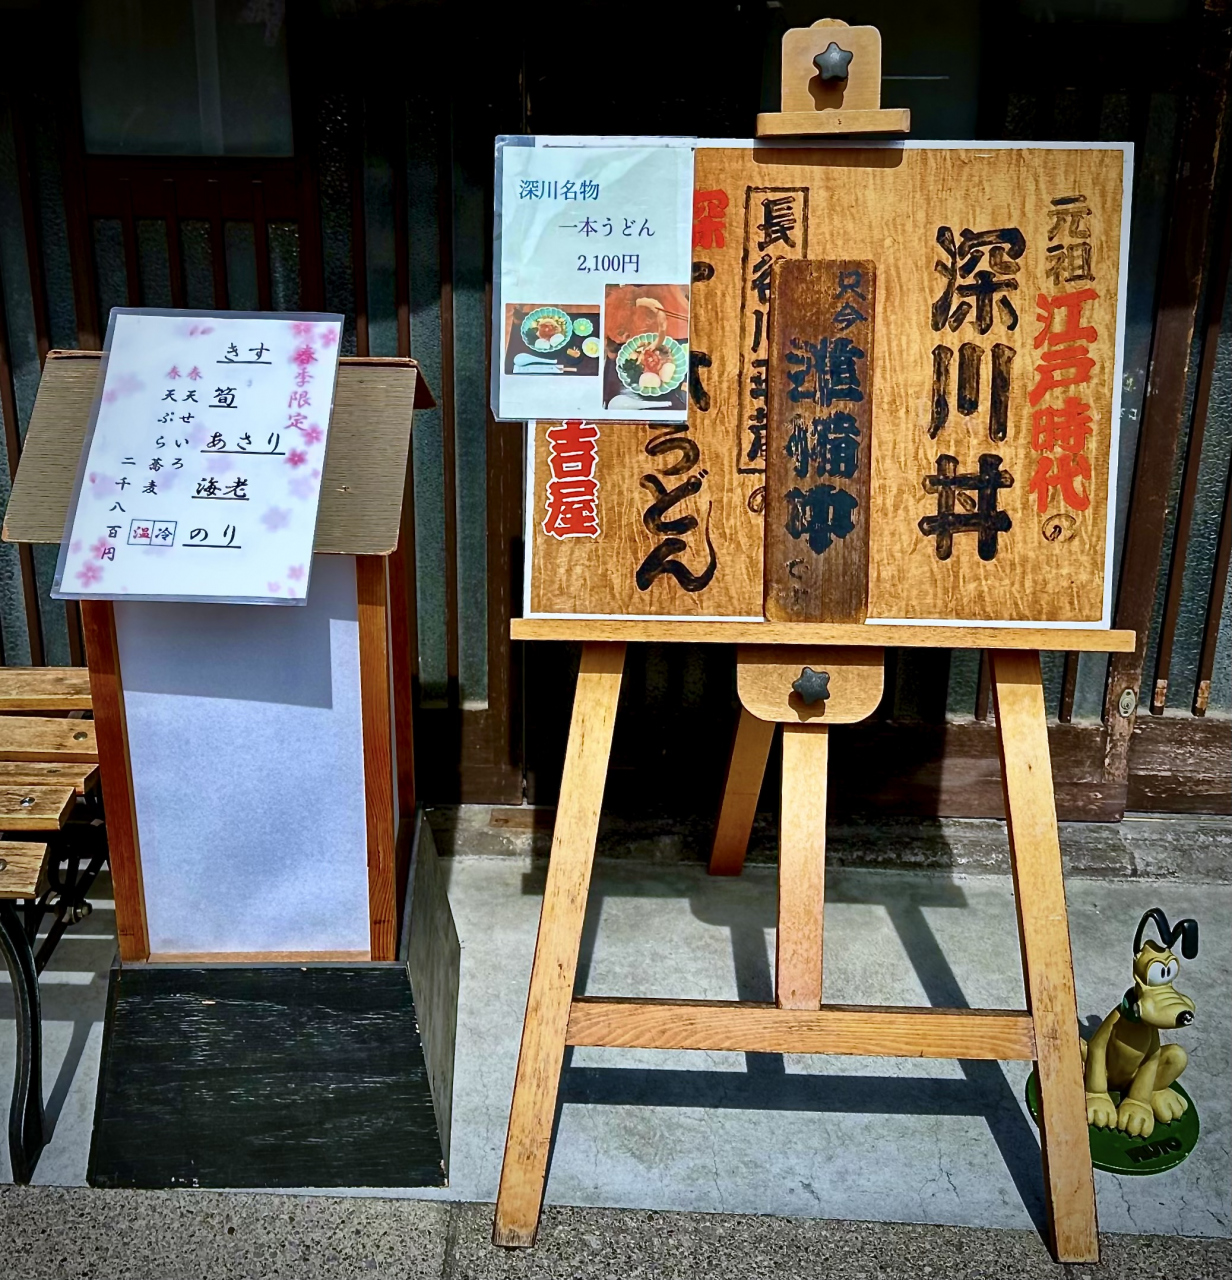 春季限定
きす
筍
あさり
海老
のり
春天せいろ
春天ぷら蕎麦
温冷
二千八百円
深川名物
一本うどん
2,100円
元祖江戸時代の
深川丼
只今
準備中
です
長谷川平蔵の
深
うどん
吉屋
PLUTO